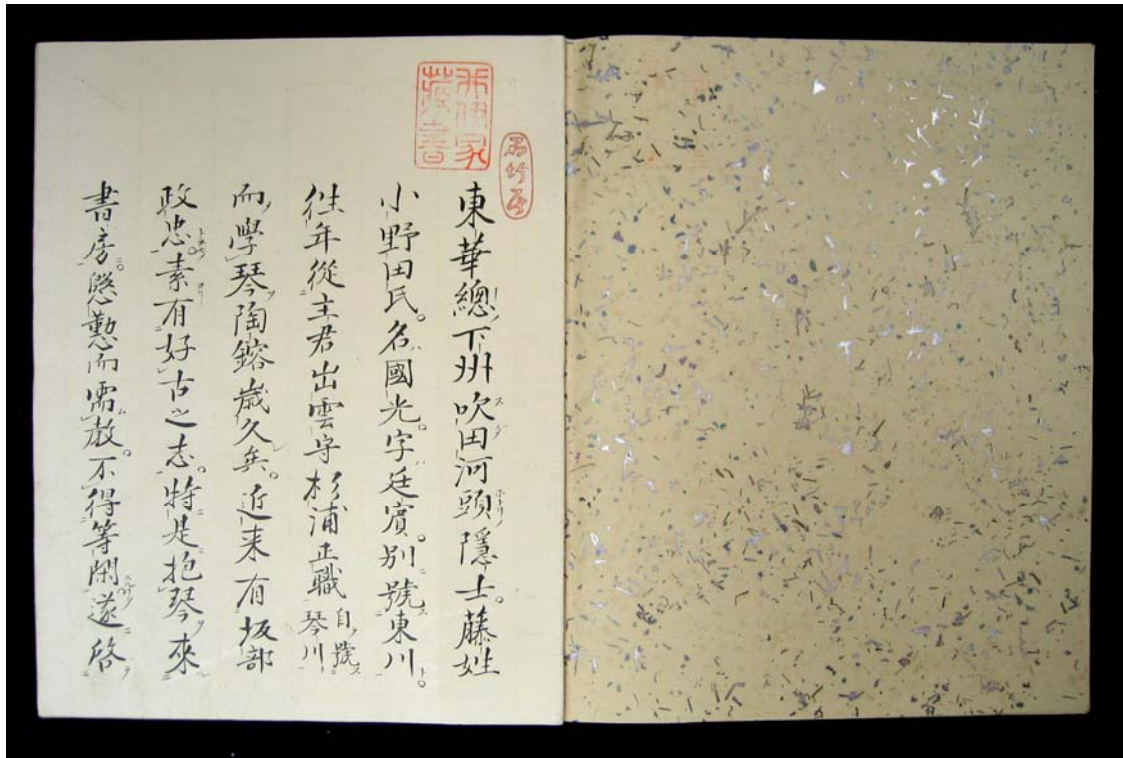 東華總下州吹田河頭隱士。藤姓
小野田氏。名國光。字廷賓。別號東川。
往年從主君出雲守杉浦正職自號琴川
而學琴陶鎔歲久矣。近来有坂部
政忠素有好古之志。特是抱琴來
書房。慇懃而需教。不得等閑遂啓
藏書